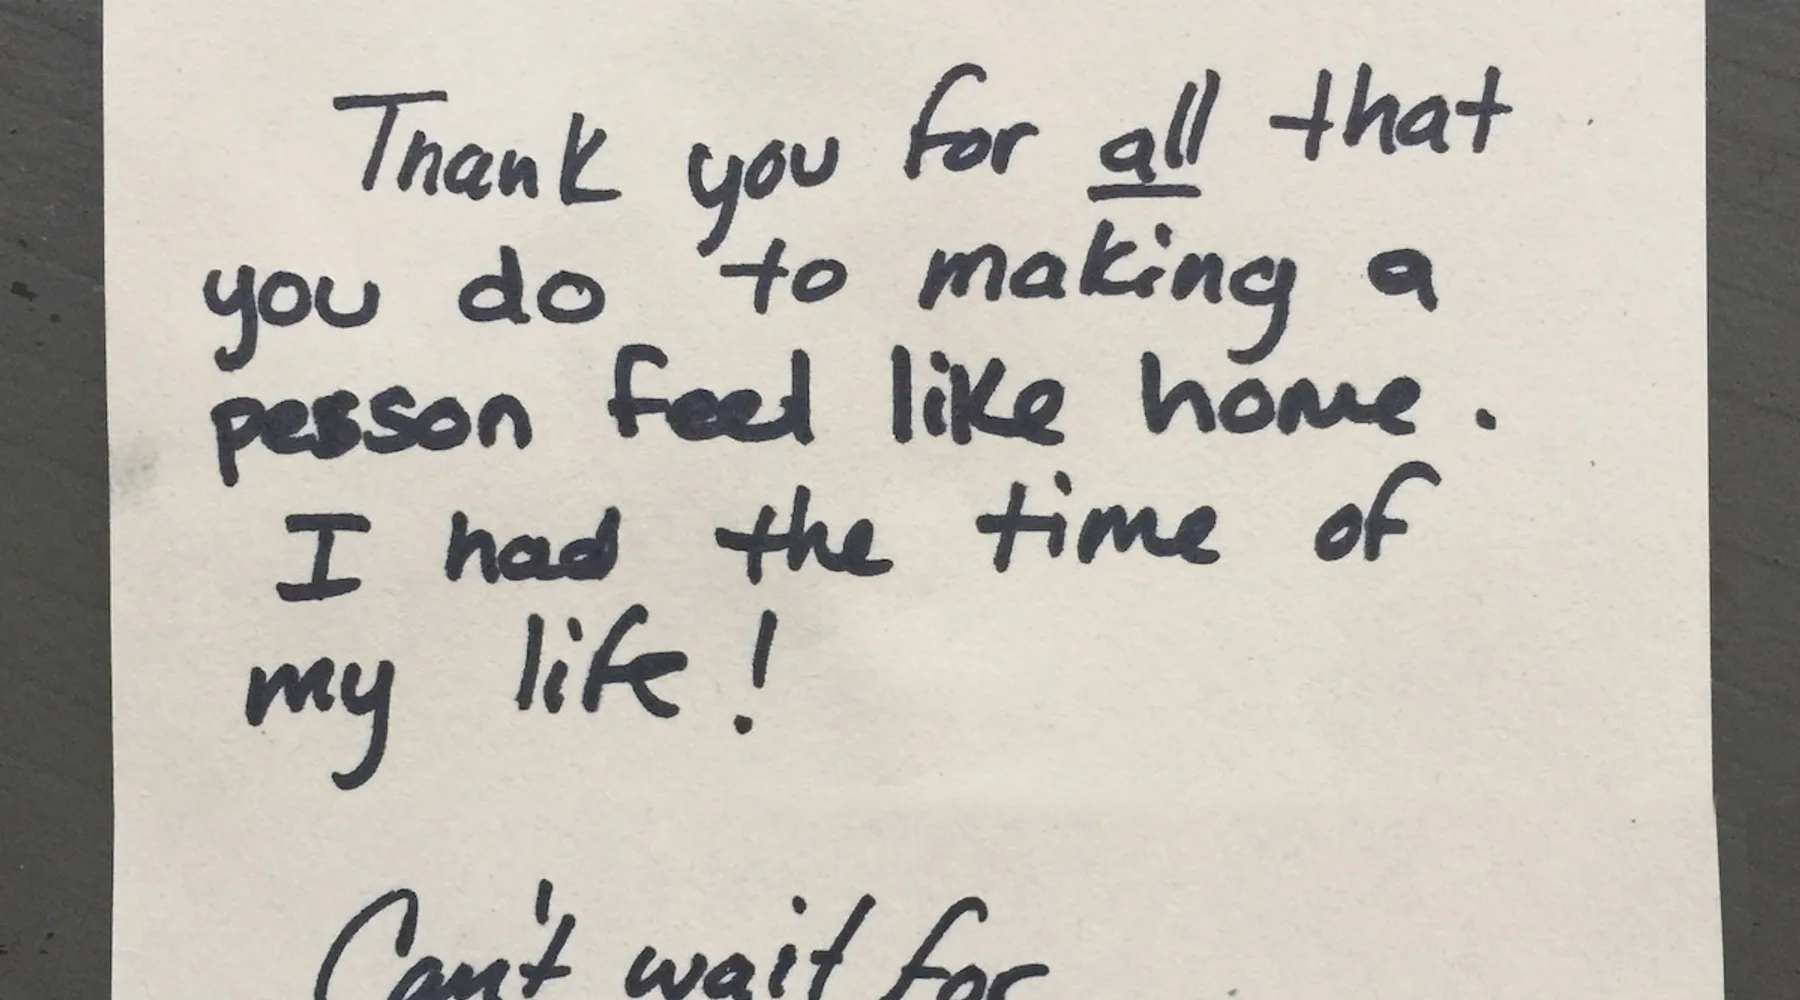 Thank you for all that
you do to making a
person feel like home.
I had the time of
my life!
Can't wait for